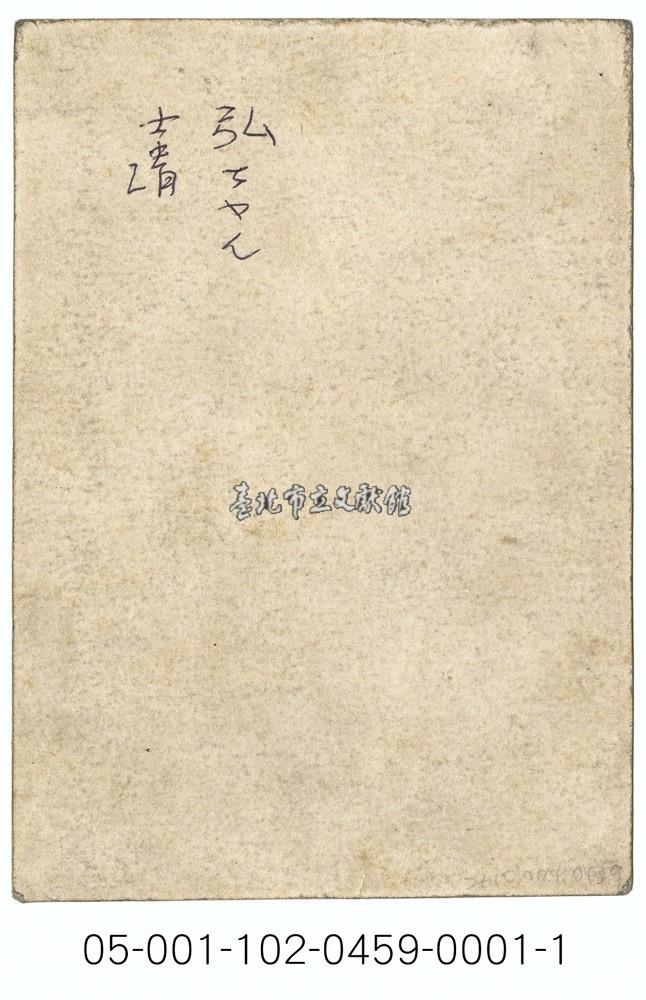 弘ちゃん
士清
臺北市立文獻館
05-001-102-0459-0001-1